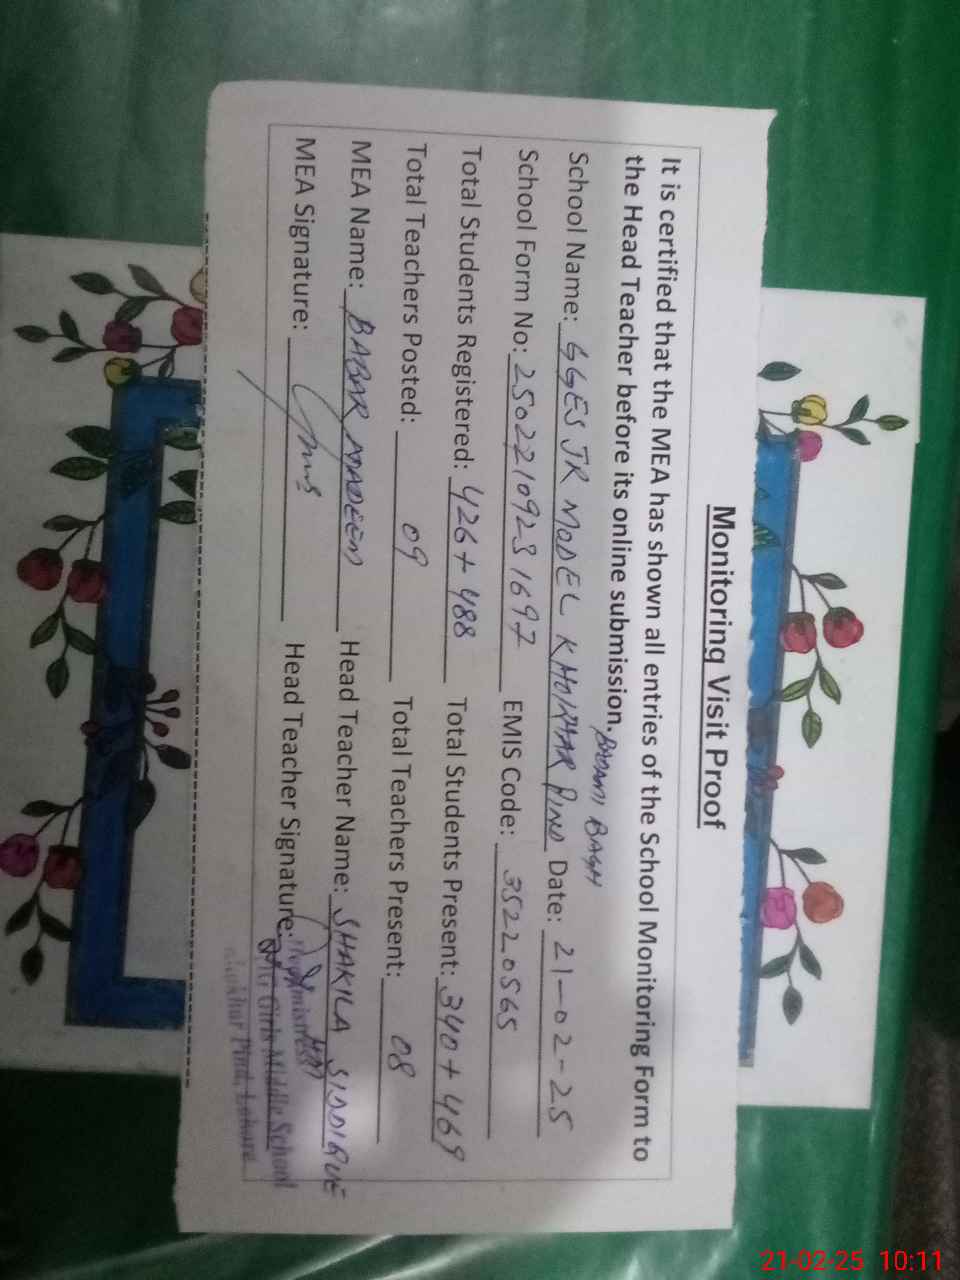 Monitoring Visit Proof
It is certified that the MEA has shown all entries of the School Monitoring Form to
the Head Teacher before its online submission. BADAMI BAGH
School Name: GGES JR MODEL KHOKHAR PIND Date: 21-02-25
School Form No: 25022109231697 EMIS Code: 35220565
Total Students Registered: 426+488 Total Students Present: 340+469
Total Teachers Posted: 09 Total Teachers Present: 08
MEA Name: BABAR NADEEM Head Teacher Name: SHAKILA SIDDIQUE
MEA Signature: Head Teacher Signature:
Girls Middle School
Pind, Lahore
21-02-25 10:11